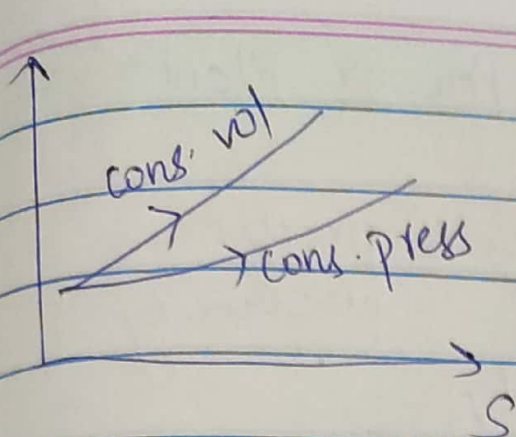 cons. vol
cons. press
S